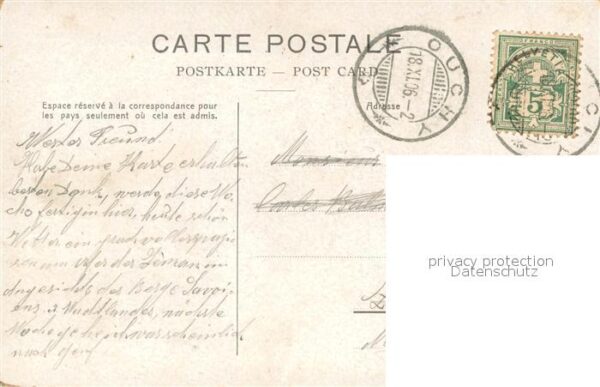 CARTE POSTALE
POSTKARTE — POST CARD
Espace réservé à la correspondance pour
les pays seulement où cela est admis.
Adresse
OUCHY
18.XI.06-2
OUCHY
FRANCO
HELVETIA
5
Werter Freund!
Habe Deine Karte erhalten
besten Dank, werde diese Wo-
che fertig in hier, heute schön
Wetter ein prachtvoller spazie
am Ufer des Léman im
Angesichts der Berge Savoi-
ens & Waadtlandes, nächste
Woche gehe ich warscheinlich
nach Genf
Monsieur
privacy protection
Datenschutz